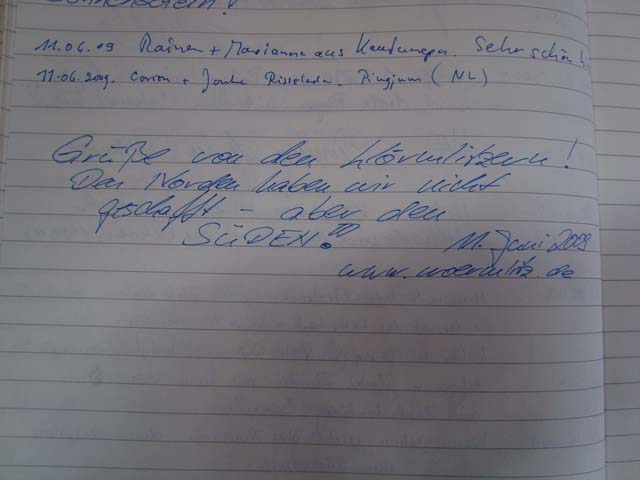 Sonnenschein!
11.06.09 Rainer + Marianne aus Kaufungen. Sehr schön
11.06.2009. Corrie + Pingjum (NL)
Grüße von den Wörmlitzern!
Den Norden haben wir nicht
geschafft - aber den
SÜDEN!
11. Juni 2009
www.woermlitz.de